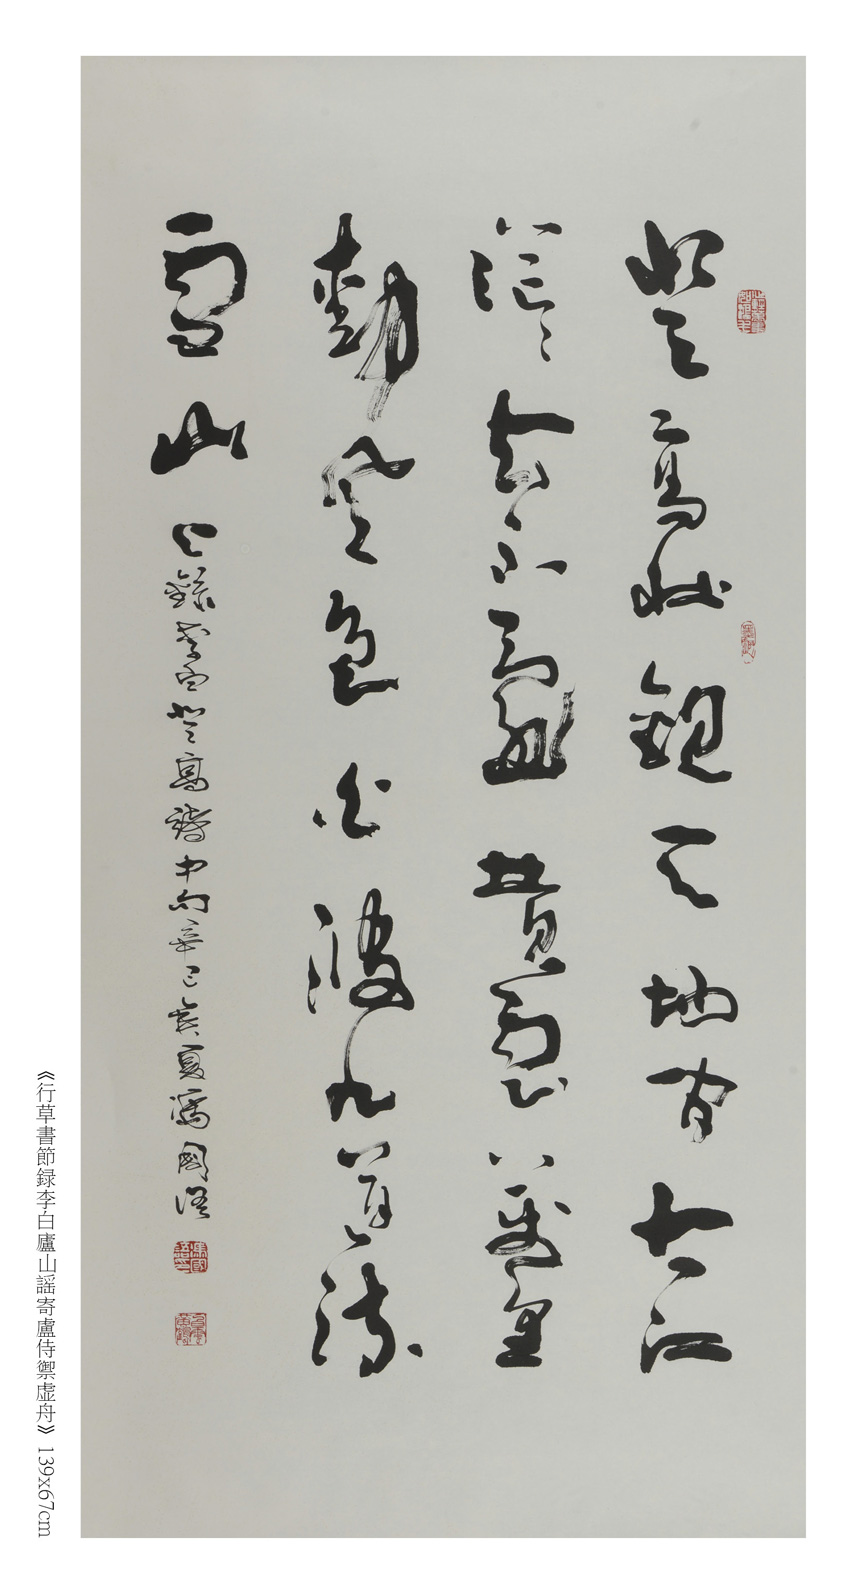 登高壯觀天地間大江
茫茫去不還黃雲萬里
動風色白波九道流
雪山
錄李白登高詩中句辛巳夏馮國語
《行草書節録李白廬山謡寄盧侍禦虚舟》 139x67cm